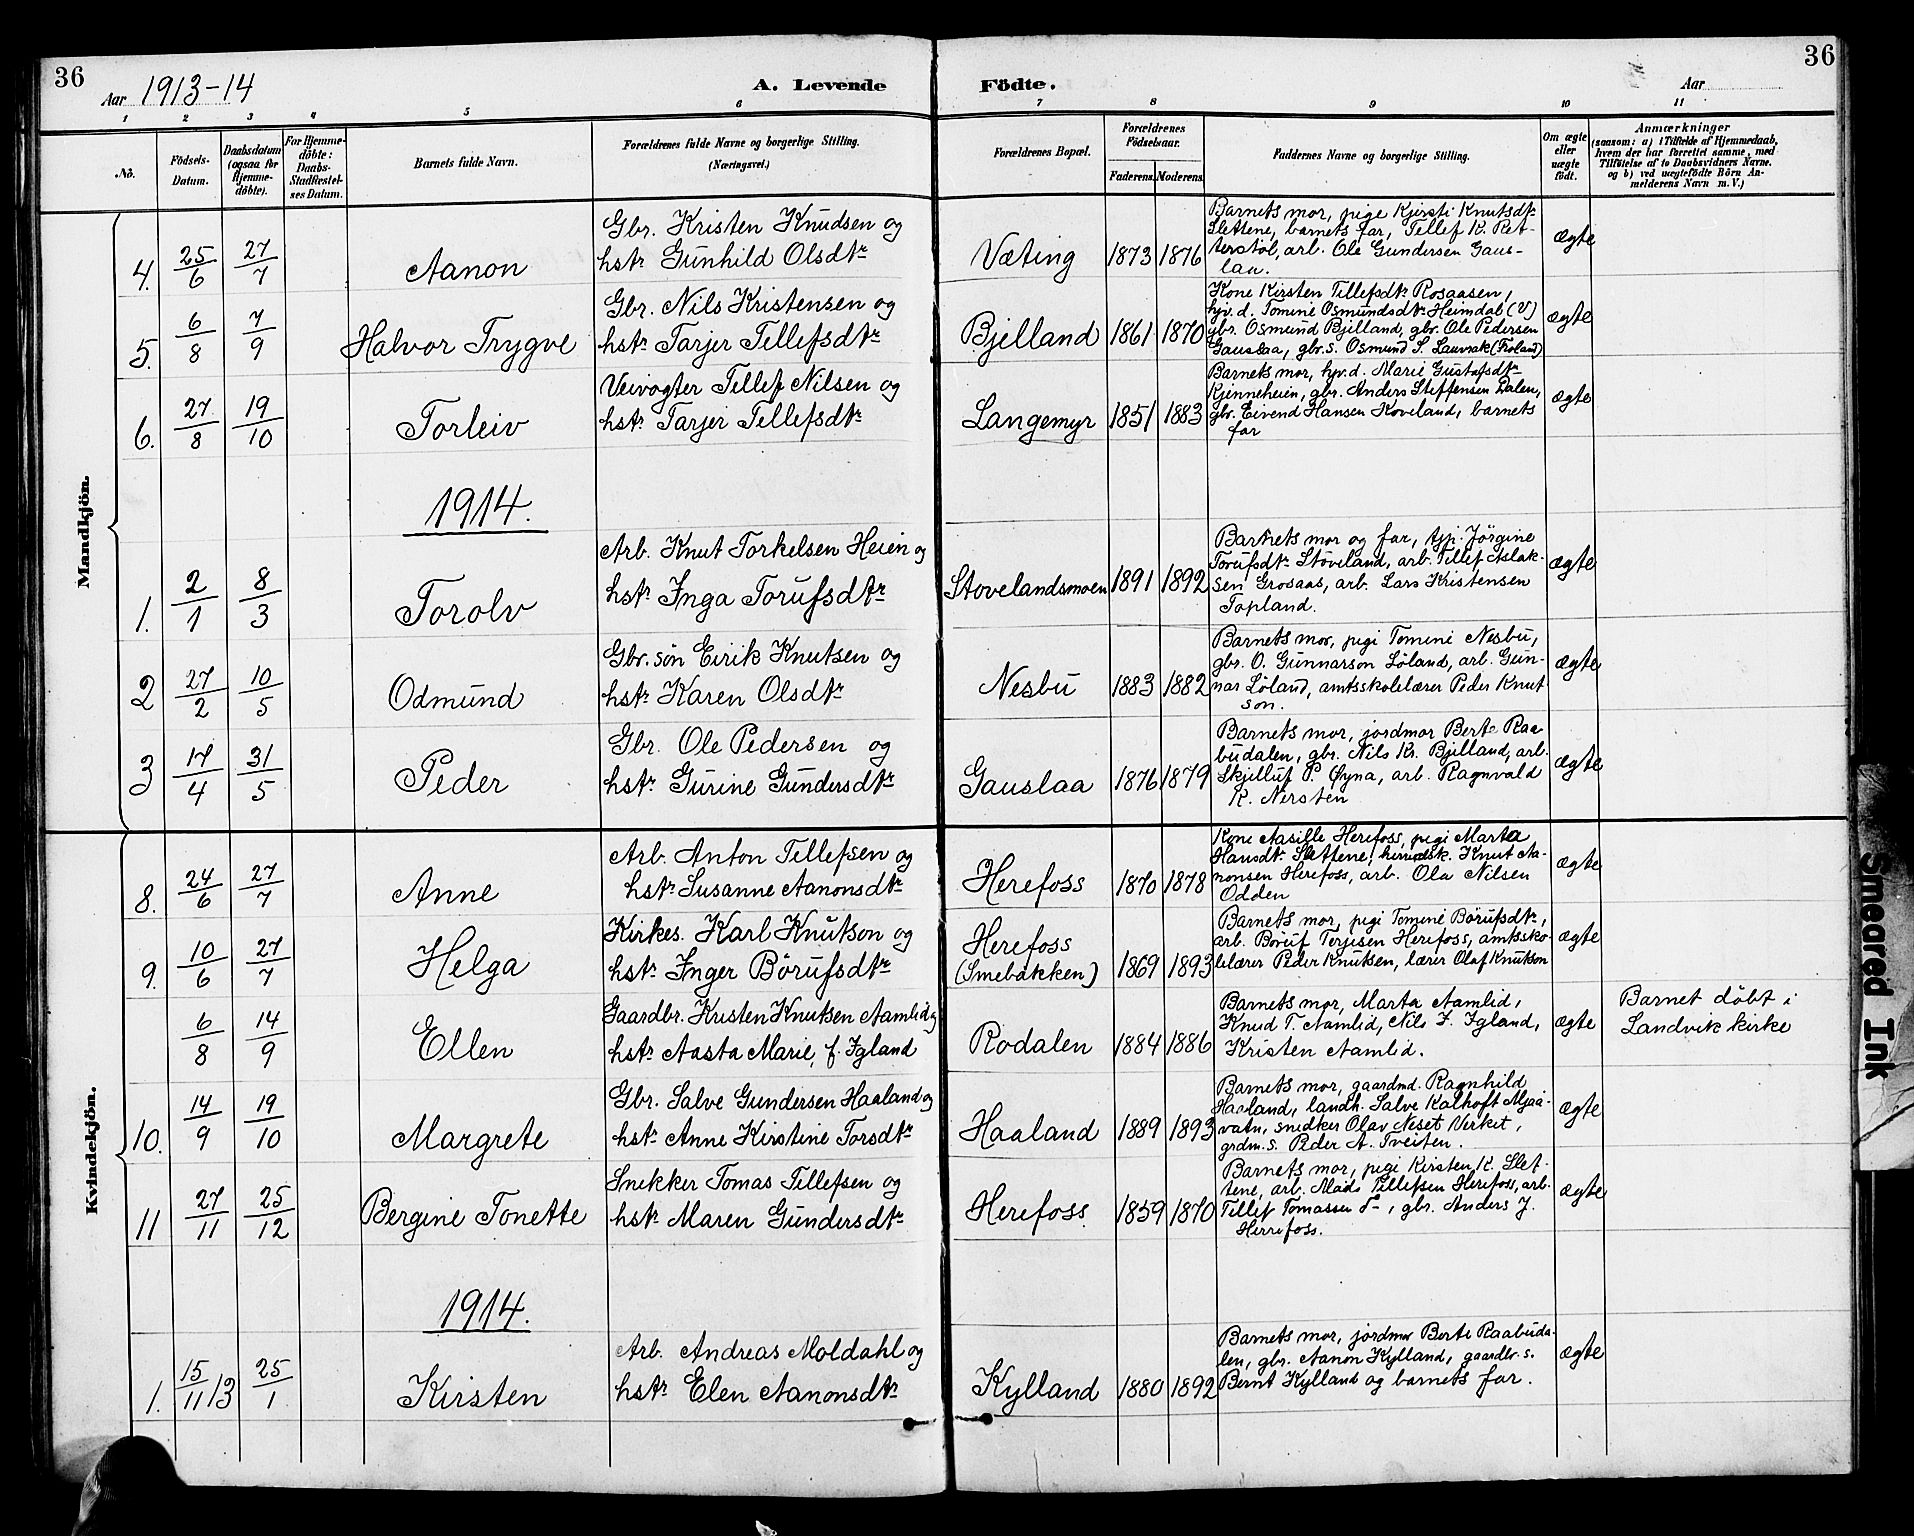 36
36
Aar 1913-14
A. Levende Födte.
Aar
1 2 3 4 5 6 7 8 9 10 11
No.
Födsels-Datum.
Daabsdatum (ogsaa for Hjemme-döbte).
For Hjemme-döbte: Daabs-Stadfæstel-ses Datum.
Barnets fulde Navn.
Forældrenes fulde Navne og borgerlige Stilling.
(Næringsvei.)
Forældrenes Bopæl.
Forældrenes Födselsaar.
Faderens. Moderens.
Faddernes Navne og borgerlige Stilling.
Om ægte eller uægte födt.
Anmærkninger
(saasom: a) i Tilfælde af Hjemmedaab,
hvem der har forrettet samme, med
Tilföielse af to Daabsvidners Navne.
og b) ved uægtefödte Börn An-
melderens Navn m. V.)
Mandkjön.
4. 25/6 27/7 Aanon
Gbr. Kristen Knudsen og
hstr Gunhild Olsdtr
Væting 1873 1876
Barnets mor, pige Kjersti Knutsdtr
Slettene, barnets far, Tellef K. Ret-
terstöl, arb. Ole Gundersen Gaus-
laa.
ægte
5. 6/8 7/9 Halvor Trygve
Gbr. Nils Kristensen og
hstr Tarjer Tellefsdtr
Bjelland 1861 1870
Kone Kirsten Tellefsdtr Rosaasen,
hjv. d. Tomine Osmundsdtr Heimdal (V)
gbr. Osmund Bjelland, gbr. Ole Pedersen
Gauslaa, gbr. s. Osmund S. Lauvrak (Froland)
ægte
6. 27/8 19/10 Torleiv
Veivogter Tellef Nilsen og
hstr Tarjer Tellefsdtr
Langemyr 1851 1883
Barnets mor, hjv. d. Marie Gustafsdtr
Kjenneheien, gbr. Anders Steffensen Dalen,
gbr. Eivend Hansen Koveland, barnets
far
ægte
1914.
1. 2/1 8/3 Torolv
Arb. Knut Torkelsen Heien og
hstr Inga Torufsdtr
Stovelandsmoen 1891 1892
Barnets mor og far, tjp. Jörgine
Torufsdtr Stöveland, arb. Tellef Aslak-
sen Grosaas, arb. Lars Kristensen
Topland.
ægte
2 27/2 10/5 Odmund
Gbr. sön Eirik Knutsen og
hstr Karen Olsdtr
Nesbu 1883 1882
Barnets mor, pige Tomine Nesbu,
gbr. O. Gunnarson Löland, arb. Gun-
nar Löland, amtsskolelærer Peder Knut-
son.
ægte
3 17/4 31/5 Peder
Gbr. Ole Pedersen og
hstr Gurine Gundersdtr
Gauslaa 1876 1879
Barnets mor, jordmor Berte Raa-
budalen, gbr. Nils Kr. Bjelland, arb.
Skjelluf P. Øyna, arb. Ragnvald
K. Nersten
ægte
Kvindekjön.
8. 24/6 27/7 Anne
Arb. Anton Tellefsen og
hstr Susanne Aanonsdtr
Herefoss 1870 1878
Kone Aasille Herefoss, pige Marta
Hansdtr Slettene, Knut Aa-
nonsen Herefoss, arb. Ola Nilsen
Odden
ægte
9. 10/6 27/7 Helga
Kirkes. Karl Knutson og
hstr Inger Börufsdtr
Herefoss
(Smebakken) 1869 1893
Barnets mor, pige Tomine Börufsdtr,
arb. Böruf Terjesen Herefoss, amtssko-
lelærer Peder Knutsen, lærer Olaf Knutson
ægte
6/8 14/9 Ellen
Gaardbr. Kristen Knutsen Aamlid og
hstr Aasta Marie, f. Igland
Rodalen 1884 1886
Barnets mor, Marta Aamlid,
Knud T. Aamlid, Nils J. Igland,
Kristen Aamlid.
ægte
Barnet döbt i
Landvik kirke
10. 14/9 19/10 Margrete
Gbr. Salve Gundersen Haaland og
hstr Anne Kirstine Torsdtr
Haaland 1889 1893
Barnets mor, gaardmd. Ragnhild
Haaland, landh. Salve Kalhoft Mjaa-
vatn, snedker Olav Neset Verket,
grdm. s. Peder A. Tveiten.
ægte
11 27/11 25/12 Bergine Tonette
Snekker Tomas Tellefsen og
hstr Maren Gundersdtr
Herefoss 1859 1870
Barnets mor, pige Kirsten K. Slet-
tene, arb. Mads Tellefsen Herefoss, arb.
Tellef Tomassen S-, gbr. Anders J.
Herrefoss.
ægte
1914.
1. 15/11 13 25/1 Kirsten
Arb. Andreas Moldahl og
hstr Elen Aanonsdtr
Kylland 1880 1892
Barnets mor, jordmor Berte Raabuda-
len, gbr. Aanon Kylland, gaardbr. s.
Bernt Kylland og barnets far.
ægte
Smeared Ink